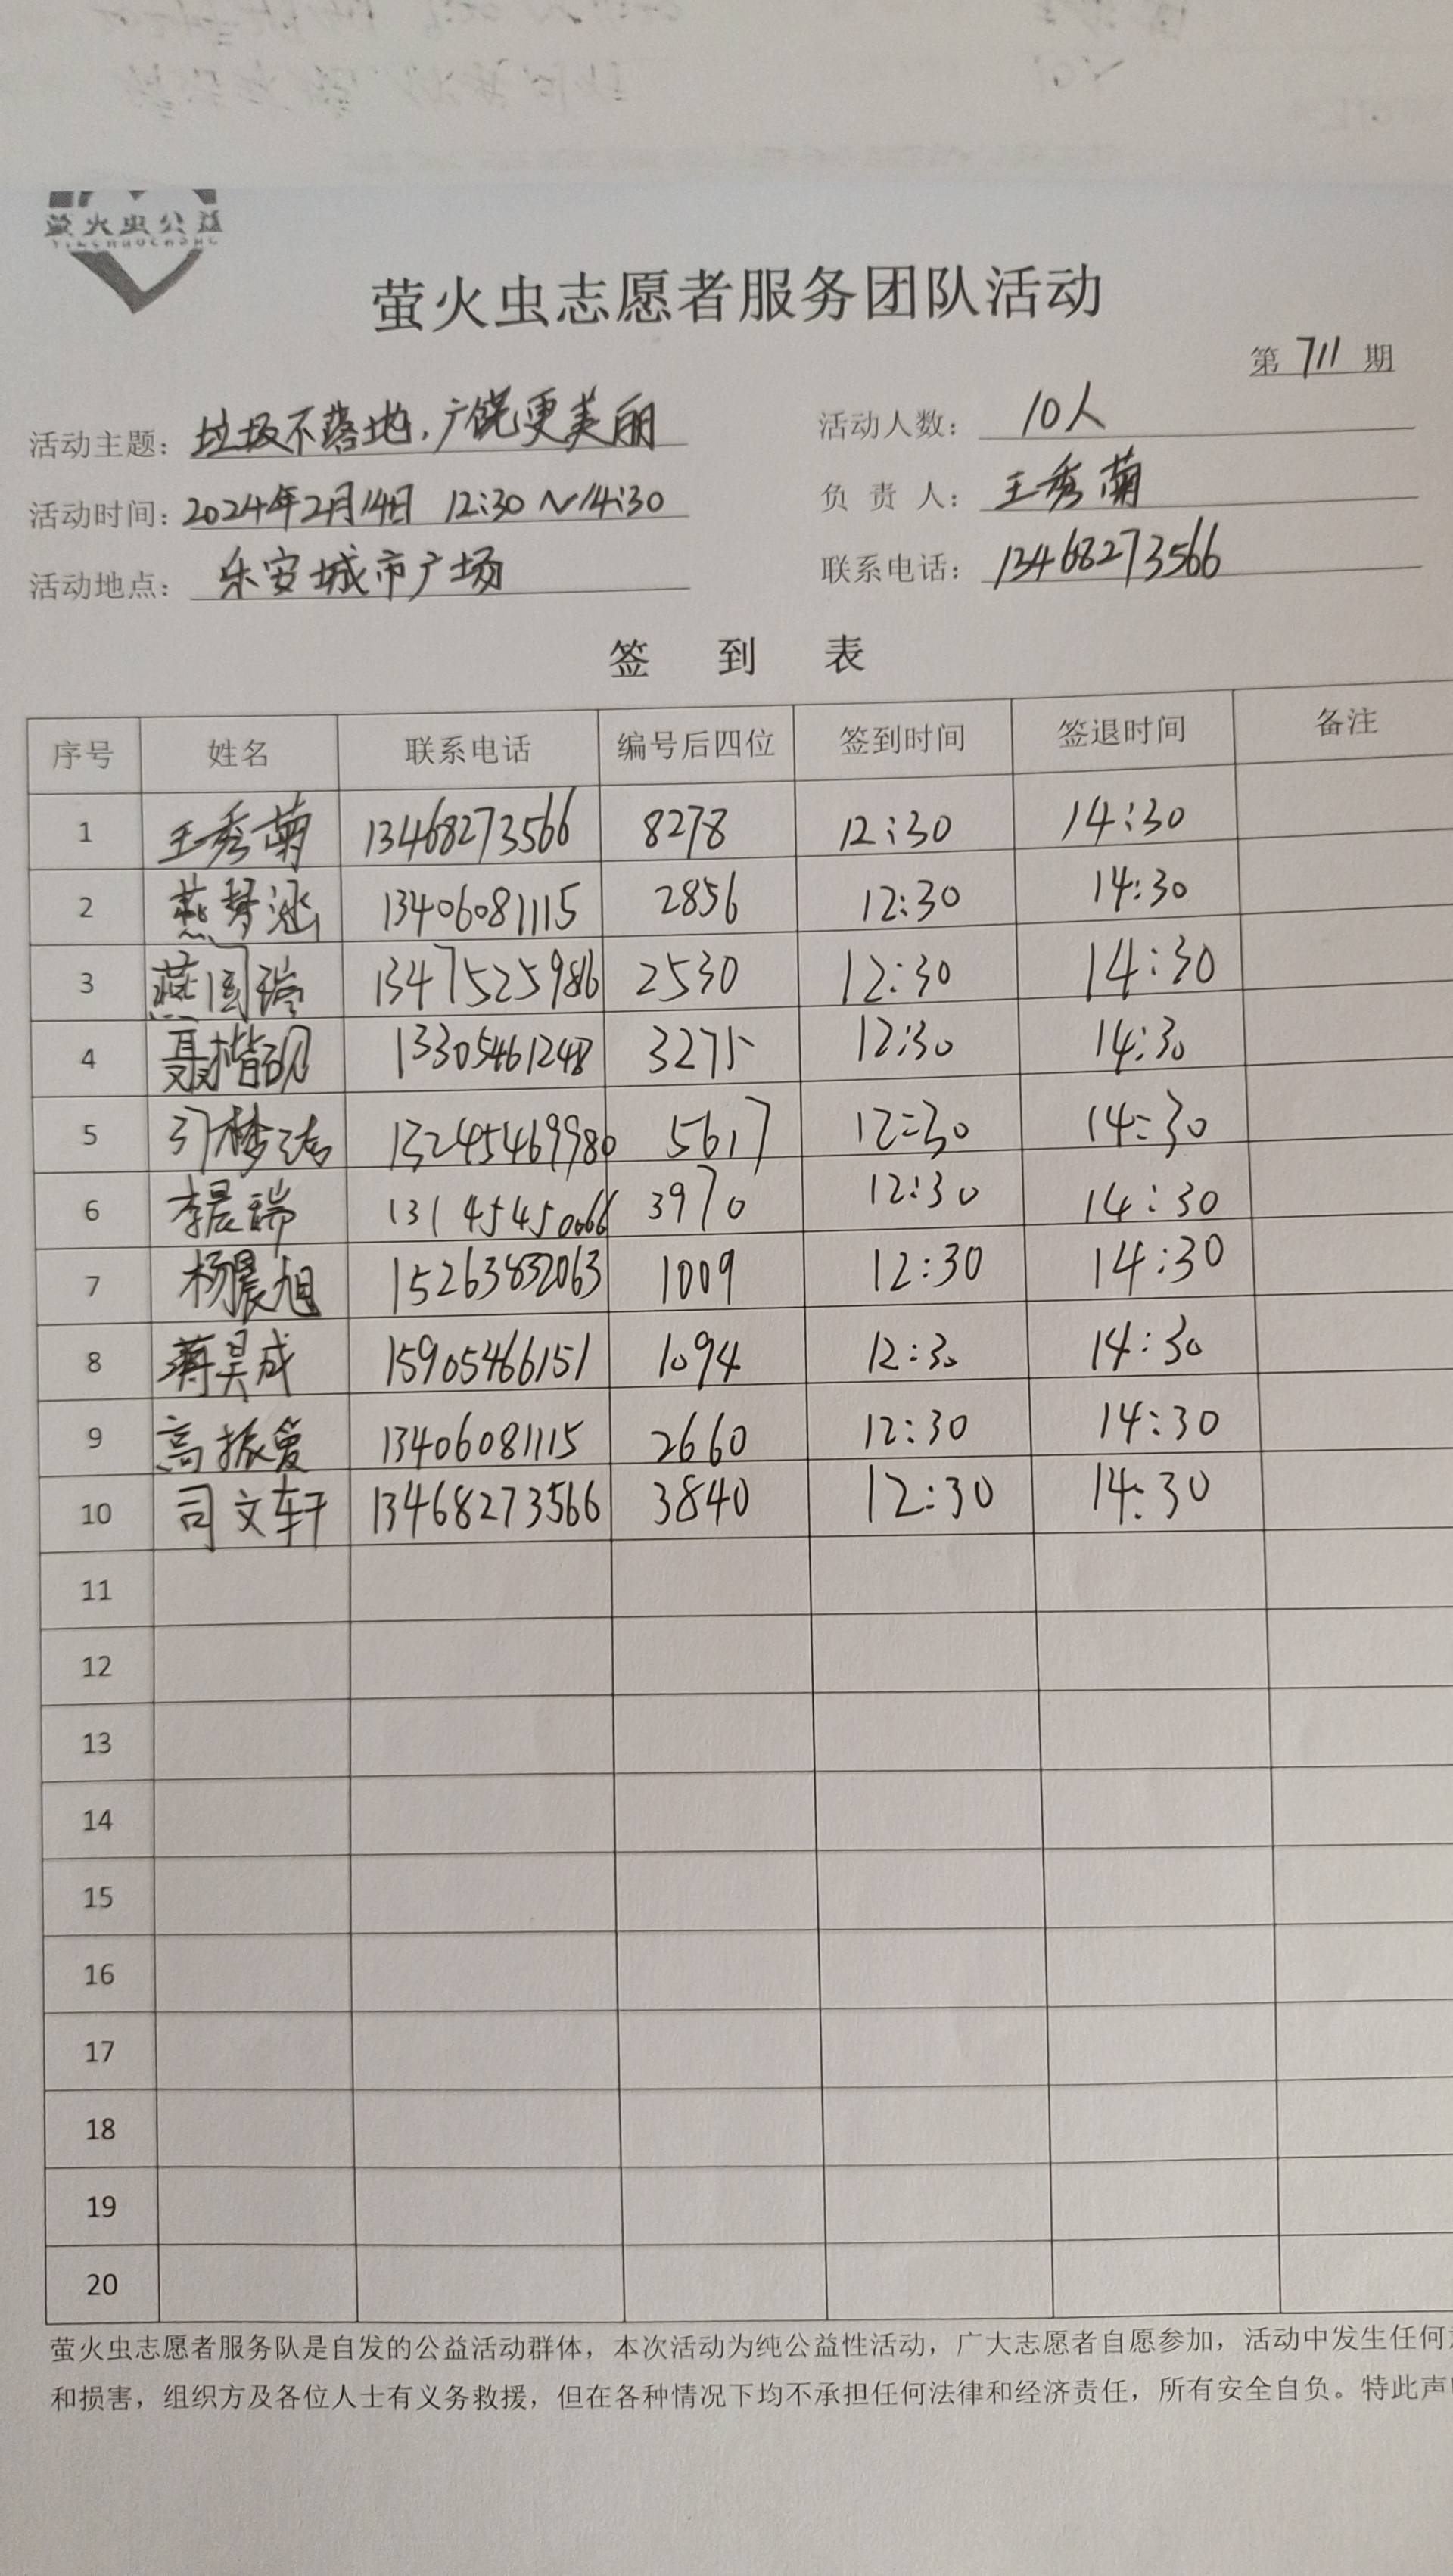 萤火虫公益
YINGHUOCHONG
萤火虫志愿者服务团队活动
第 711 期
活动主题： 垃圾不落地，广饶更美丽 活动人数： 10人
活动时间： 2024年2月14日 12:30～14:30 负 责 人： 王秀菊
活动地点： 乐安城市广场 联系电话： 13468273566
签 到 表
序号 姓名 联系电话 编号后四位 签到时间 签退时间 备注
1 王秀菊 13468273566 8278 12:30 14:30
2 燕梦涵 13406081115 2856 12:30 14:30
3 燕国瑞 1347525986 2530 12:30 14:30
4 聂楷砚 13305461248 3275 12:30 14:30
5 13245469980 5617 12:30 14:30
6 李晨瑞 13145450066 3970 12:30 14:30
7 杨晨旭 15263832063 1009 12:30 14:30
8 蒋昊成 15905466151 1094 12:30 14:30
9 高振爱 13406081115 2660 12:30 14:30
10 司文轩 13468273566 3840 12:30 14:30
11
12
13
14
15
16
17
18
19
20
萤火虫志愿者服务队是自发的公益活动群体，本次活动为纯公益性活动，广大志愿者自愿参加，活动中发生任何
和损害，组织方及各位人士有义务救援，但在各种情况下均不承担任何法律和经济责任，所有安全自负。特此声